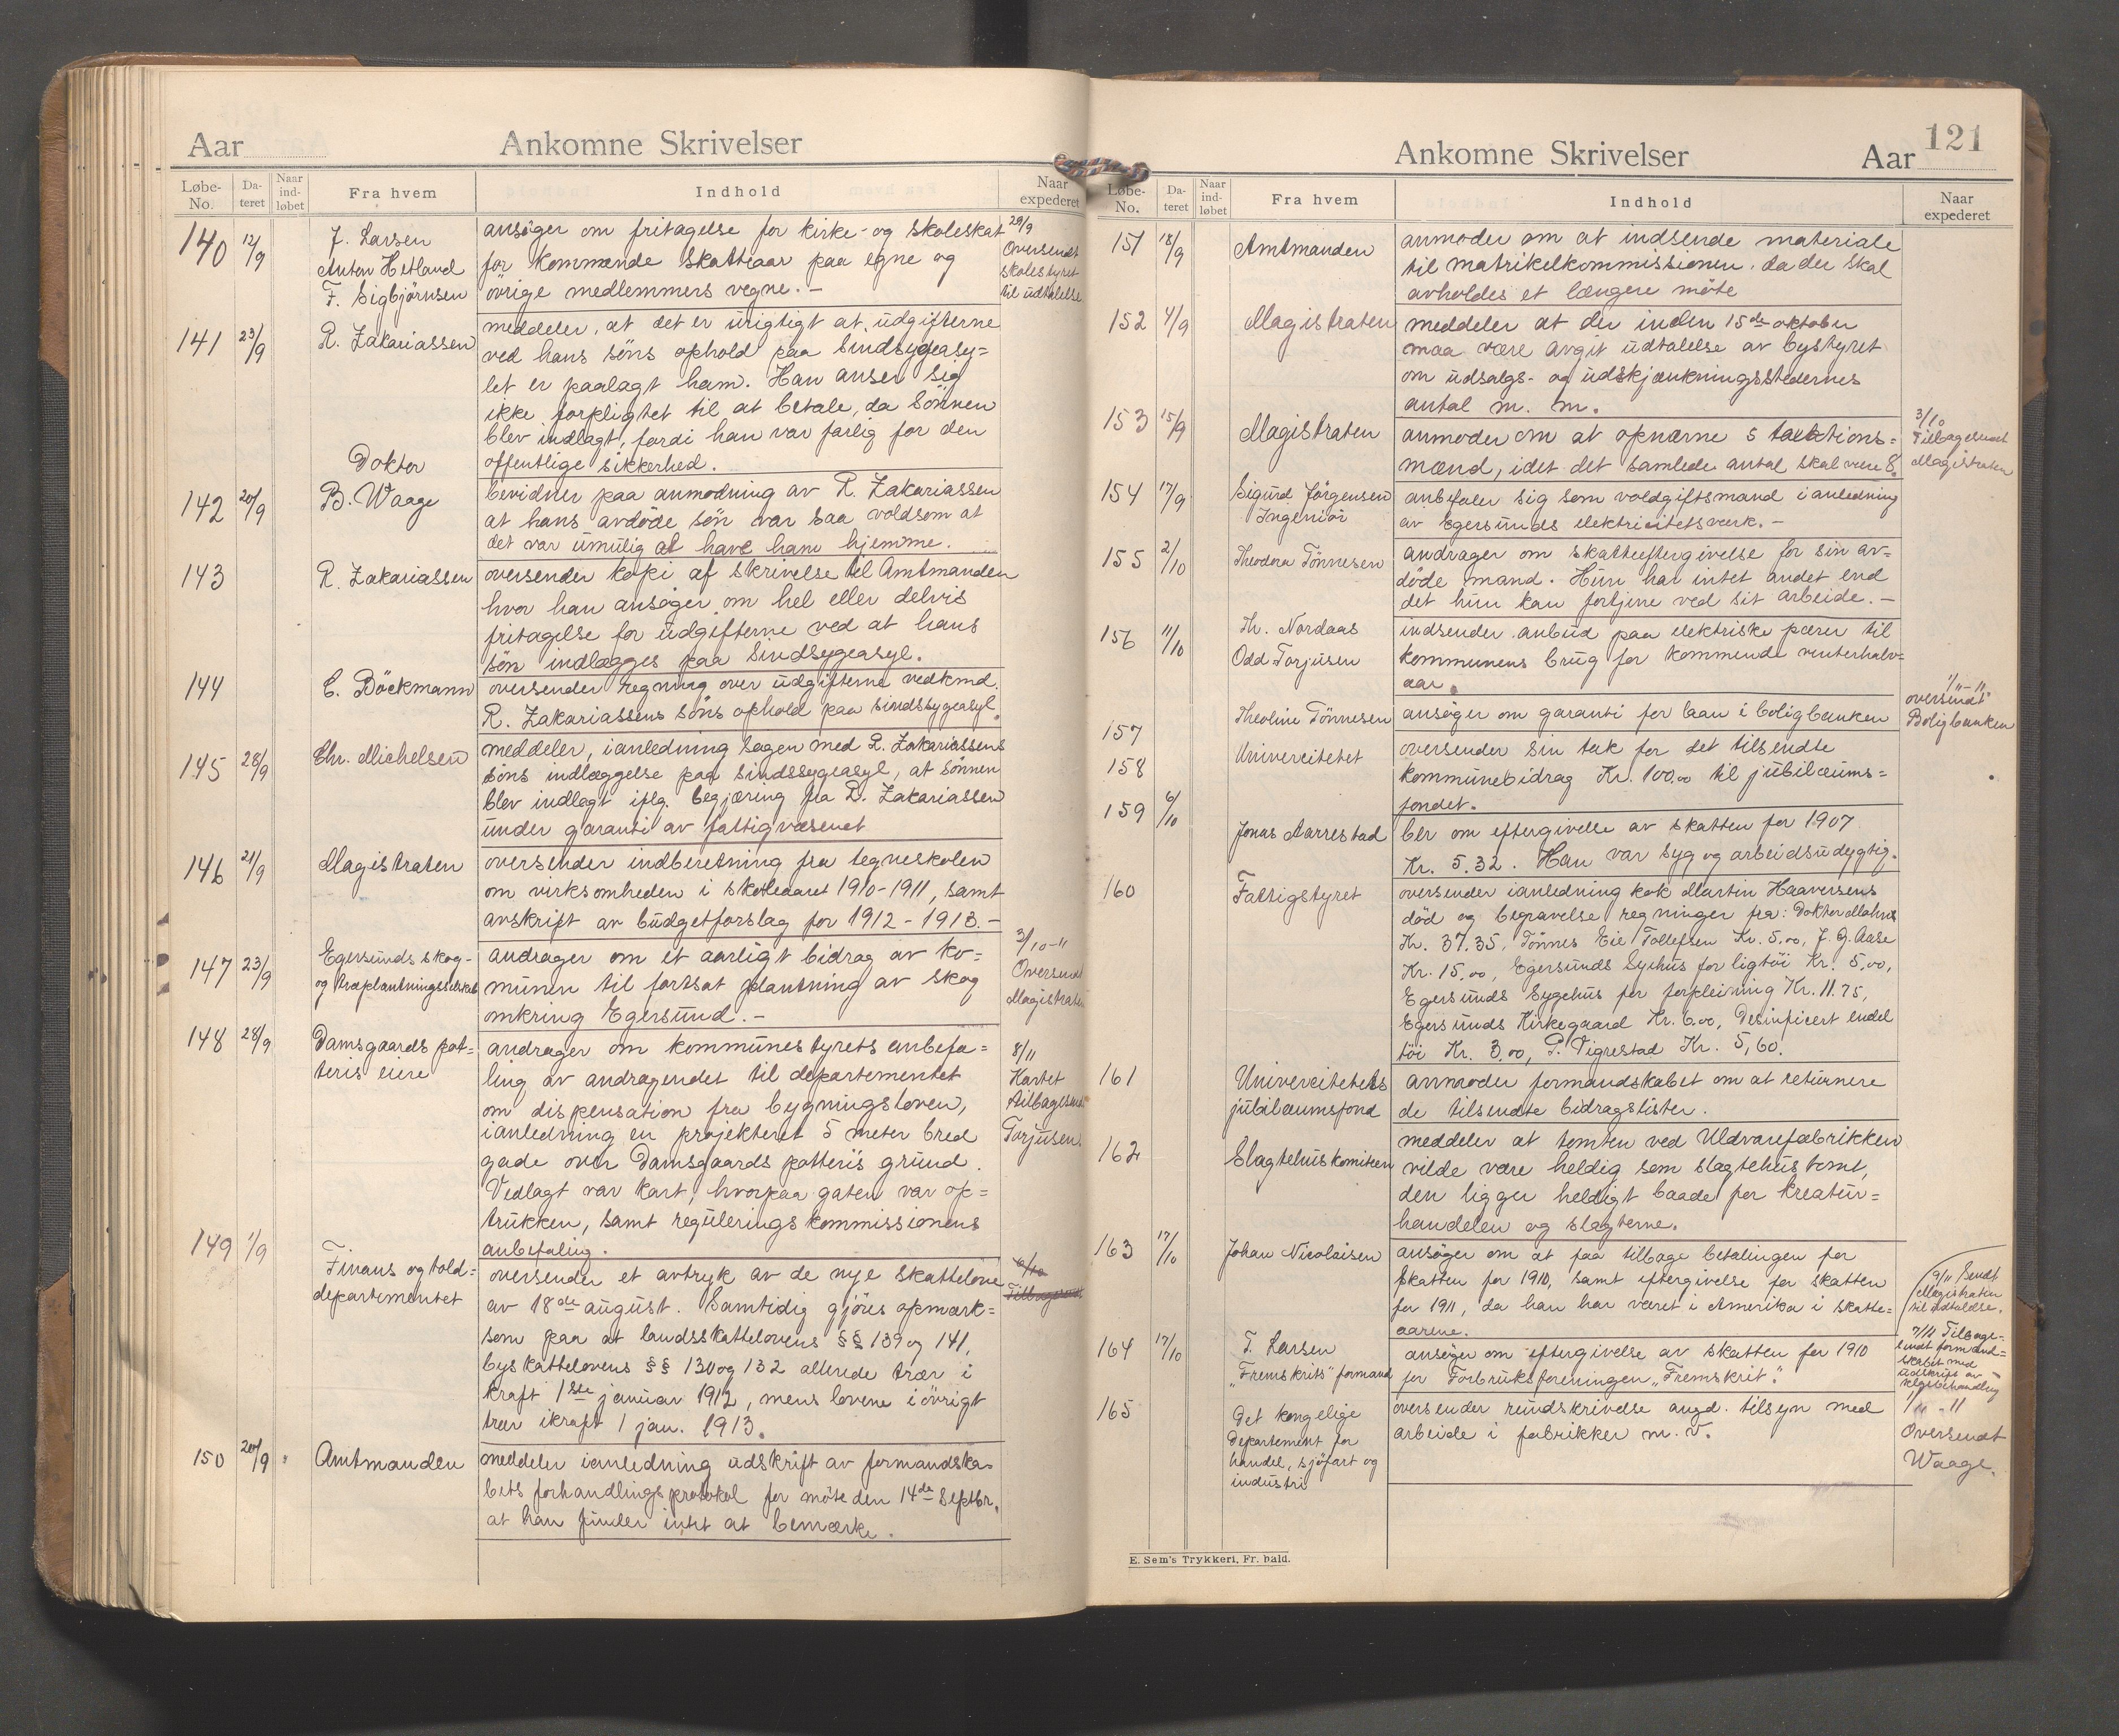 Aar
Ankomne Skrivelser
Løbe-No.
Dateret
Naar indløbet
Fra hvem
Indhold
Naar expederet
140 12/9 J. Larsen ansøger om fritagelse for kirke- og skoleskat 29/9
Anton Hetland for kommende skatteaar paa egne og Oversendt
F. Sigbjörnsen övrige medlemmers vegne. - skolestyret
til udtalelse
141 23/9 R. Zakariassen meddeler, at det er urigtigt at udgifterne
ved hans söns ophold paa Sindsygeasy=
let er paalagt ham. Han anser sig
ikke forpligtet til at betale, da Sönnen
blev indlagt, fordi han var farlig for den
offentlige sikkerhed.
142 20/9 Doktor
B. Waage bevidner paa anmodning av R. Zakariassen
at hans avdöde sön var saa voldsom at
det var umulig at have ham hjemme.
143 R. Zakariassen oversender kopi af skrivelse til Amtmanden
hvor han ansöger om hel eller delvis
fritagelse for udgifterne ved at hans
sön indlægges paa Sindsygeasyl.
144 C. Böckmann oversender regning over udgifterne vedkmd.
R. Zakariassens söns ophold paa sindssygeasyl.
145 28/9 Chr. Michelsen meddeler, ianledning sagen med R. Zakariassens
söns indlæggelse paa sindssygeasyl, at sönnen
blev indlagt iflg. begjæring fra R. Zakariassen
under garanti av fattigvæsenet
146 21/9 Magistraten oversender indberetning fra tegneskolen
om virksomheden i skoleaaret 1910-1911, samt
avskrift av budgetforslag for 1912-1913. -
147 23/9 Egersunds skog- andrager om et aarligt bidrag av ko= 3/10-11
og træplantningsselskab munen til fortsat plantning av skog Oversendt
omkring Egersund. - Magistraten
148 28/9 Damsgaards pot= andrager om kommunestyrets anbefa= 8/11
teris eiere ling av andragendet til departementet Kartet
om dispensation fra bygningsloven, tilbagesendt
ianledning en projekteret 5 meter bred Torjusen
gade over Damsgaards potteris grund.
Vedlagt var kart, hvorpaa gaten var op=
trukken, samt reguleringskommissionens
anbefaling.
149 1/9 Finans og told= oversender et avtryk av de nye skattelove
departementet av 18de august. Samtidig gjöres opmærk= Tilbagesendt
som paa at landsskattelovens §§ 139 og 141,
byskattelovens §§ 130 og 132 allerede træer i
kraft 1ste januar 1912, mens lovene i övrigt
træer ikraft 1 jan. 1913.
150 20/9 Amtmanden meddeler ianledning udskrift av formandska=
bets forhandlingsprotokol for möte den 14de Septbr.
at han finder intet at bemærke.
Ankomne Skrivelser
Aar
121
Løbe-No.
Dateret
Naar indløbet
Fra hvem
Indhold
Naar expederet
151 18/9 Amtmanden anmoder om at indsende materiale
til matrikelkommissionen, da der skal
avholdes et længere möte
152 4/9 Magistraten meddeler at der inden 15de oktober
maa være avgit udtalelse av bystyret
om udsalgs- og udskjænkningsstedernes
antal m. m.
153 15/9 Magistraten anmoder om at opnævne 5 takstions= 3/10
mænd, idet det samlede antal skal være 8. Tilbagesendt
Magistraten
154 17/9 Sigurd Jörgensen anbefaler sig som voldgiftsmand ianledning
Ingeniör av Egersunds elektricitetsværk. -
155 2/10 Theodora Tönnesen andrager om skatteeftergivelse for sin av=
döde mand. Hun har intet andet end
det hun kan fortjene ved sit arbeide. -
156 11/10 Th. Nordaas indsender anbud paa elektriske pærer til
Odd Torjusen kommunens brug for kommende vinterhalv=
aar.
157 Theoline Tönnesen ansöger om garanti for laan i boligbanken 1/11-11
oversendt
Boligbanken
158 Univercitetet oversender sin tak for det tilsendte
kommunebidrag Kr. 100,00 til jubilæums=
fondet.
159 6/10 Jonas Aarrestad ber om eftergivelse av skatten for 1907
Kr. 5.32. Han var syg og arbeidsudygtig.
160 Fattigstyret oversender ianledning kok Martin Haaversens
död og begravelse regninger fra: Doktor Mohns
Kr. 37.35, Tönnes Eie Tollefsen Kr. 5,00, J. G. Aase
Kr. 15,00, Egersunds Sychus for ligtöi Kr. 5,00,
Egersunds Sygehus for forpleining Kr. 11.75,
Egersunds Kirkegaard Kr. 6,00, Desinficert endel
töi Kr. 3,00, P. Vigrestad Kr. 5,60.
161 Univercitetets anmoder formandskabet om at returnere
jubilæumsfond de tilsendte bidragslister.
162 Slagtehuskomiteen meddeler at tomten ved Uldvarefabrikken
vilde være heldig som slagtehustomt,
den ligger heldigt baade for kreatur=
handelen og slagterne.
163 17/10 Johan Nicolaisen ansöger om at faa tilbage betalingen for
skatten for 1910, samt eftergivelse for skatten 9/11 Sendt
for 1911, da han har været i Amerika i skatte= Magistraten
aarene. til udtalelse.
164 17/10 T. Larsen ansöger om eftergivelse av skatten for 1910 7/12 Tilbage=
"Fremskrits" formand for Forbruksforeningen "Fremskrit". sendt formand=
skabet med
udskrift av
165 Det kongelige oversender rundskrivelse angd. tilsyn med 1/11-11
Departement for arbeide i fabrikker m. v. Oversendt
handel, sjöfart og Waage.
industri
E. Sem's Trykkeri, Fr. hald.